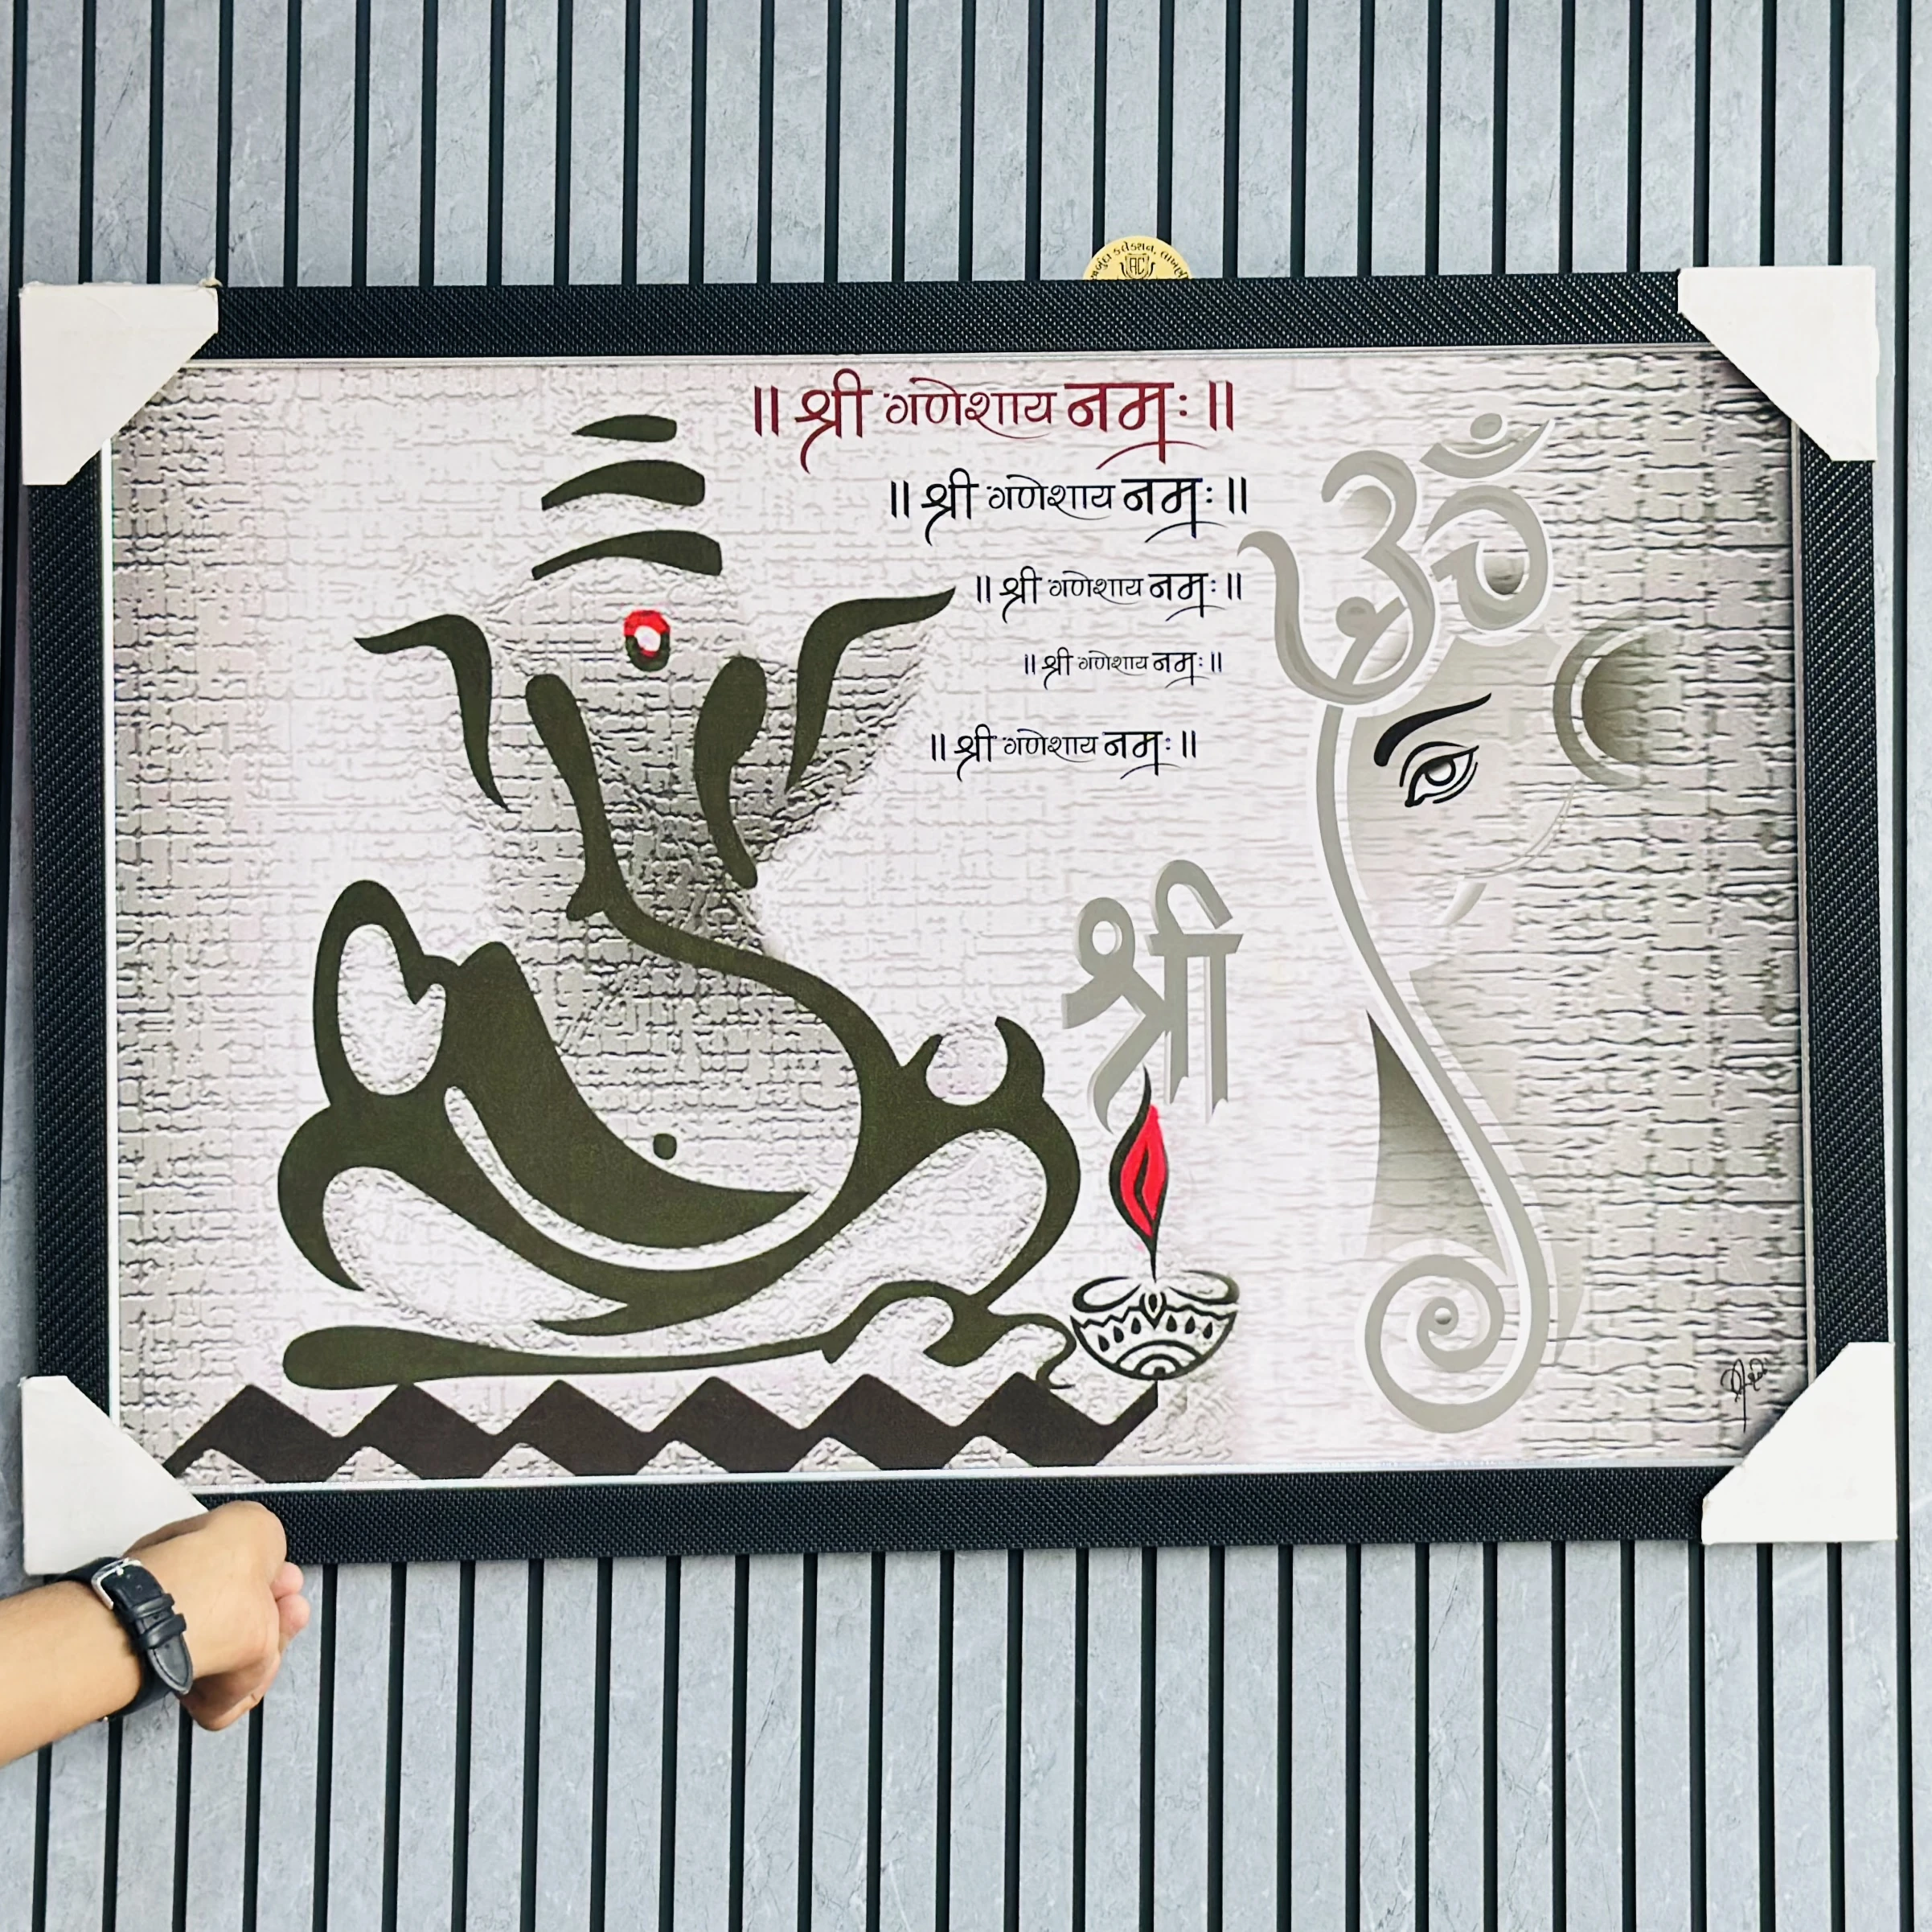 ॥ श्री गणेशाय नमः ॥
॥ श्री गणेशाय नमः ॥
॥ श्री गणेशाय नमः ॥
॥ श्री गणेशाय नमः ॥
॥ श्री गणेशाय नमः ॥
ॐ
श्री
કલેક્શન,
AC